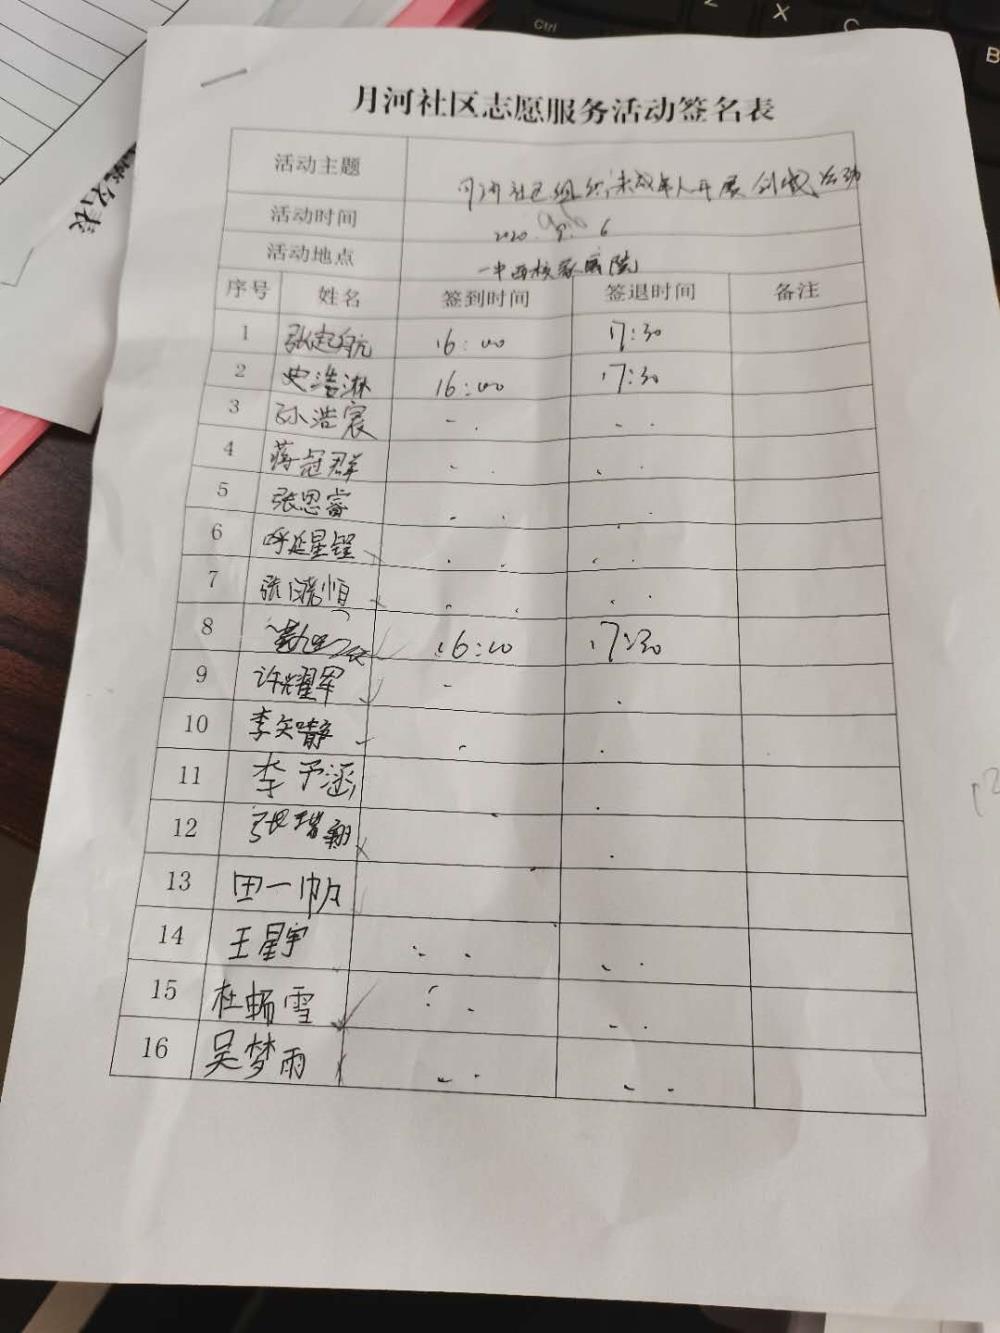 月河社区志愿服务活动签名表
活动主题 月河社区组织未成年人开展创城活动
活动时间 2020.9.6
活动地点 一中西校家属院
序号 姓名 签到时间 签退时间 备注
1 张起航 16:00 17:30
2 史浩淋 16:00 17:30
3 孙浩宸
4 蒋冠群
5 张恩睿
6 呼延星锃
7 张晓恒
8 16:00 17:30
9 许耀军
10 李矣静
11 李予涵
12 张瑞翱
13 田一帆
14 王星宇
15 杜畅雪
16 吴梦雨
Ctrl
Z
X
C
B